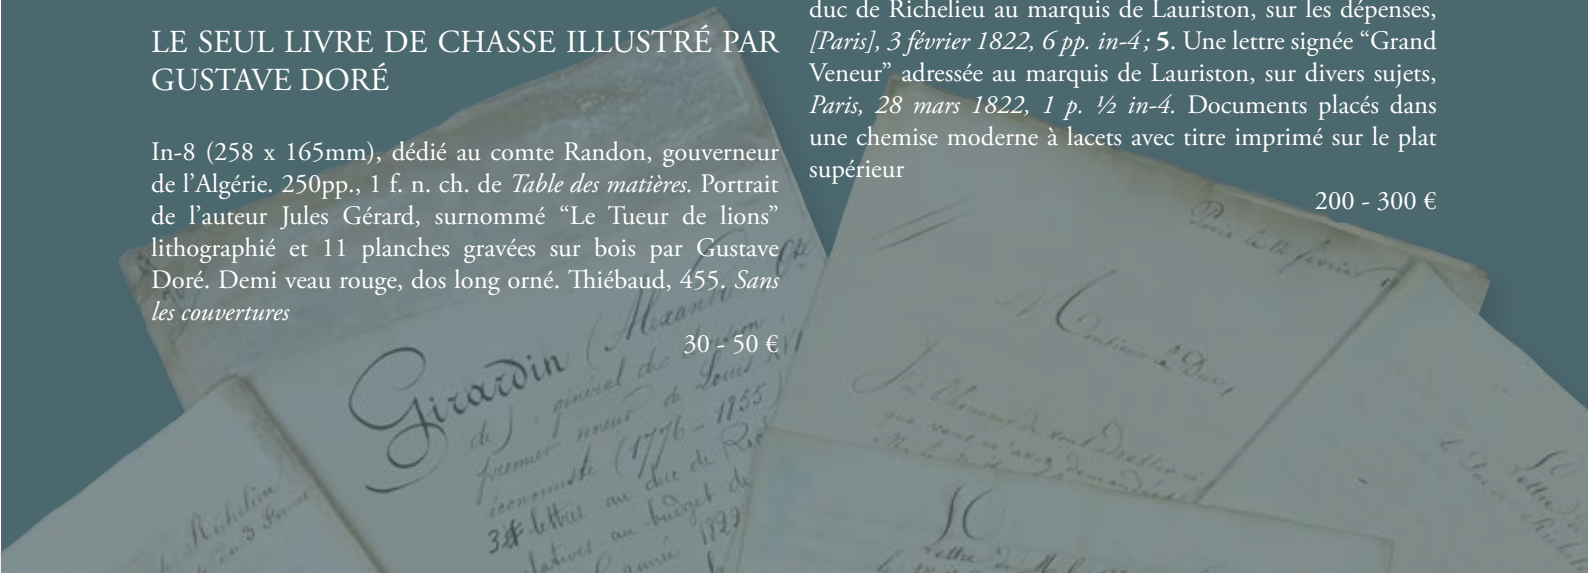 LE SEUL LIVRE DE CHASSE ILLUSTRÉ PAR
GUSTAVE DORÉ
In-8 (258 x 165mm), dédié au comte Randon, gouverneur
de l’Algérie. 250pp., 1 f. n. ch. de Table des matières. Portrait
de l’auteur Jules Gérard, surnommé “Le Tueur de lions”
lithographié et 11 planches gravées sur bois par Gustave
Doré. Demi veau rouge, dos long orné. Thiébaud, 455. Sans
les couvertures
30 - 50 €
duc de Richelieu au marquis de Lauriston, sur les dépenses,
[Paris], 3 février 1822, 6 pp. in-4 ; 5. Une lettre signée “Grand
Veneur” adressée au marquis de Lauriston, sur divers sujets,
Paris, 28 mars 1822, 1 p. ½ in-4. Documents placés dans
une chemise moderne à lacets avec titre imprimé sur le plat
supérieur
200 - 300 €
Girardin (Alexandre
de) général de division,
premier veneur de Louis
économiste (1776 - 1855)
lettres au duc de
au budget de
année 1822
Richelieu
3
février
Monsieur
J'ai l'honneur de vous adresser
que vous m'avez
Lettre
Lettre
le Duc de